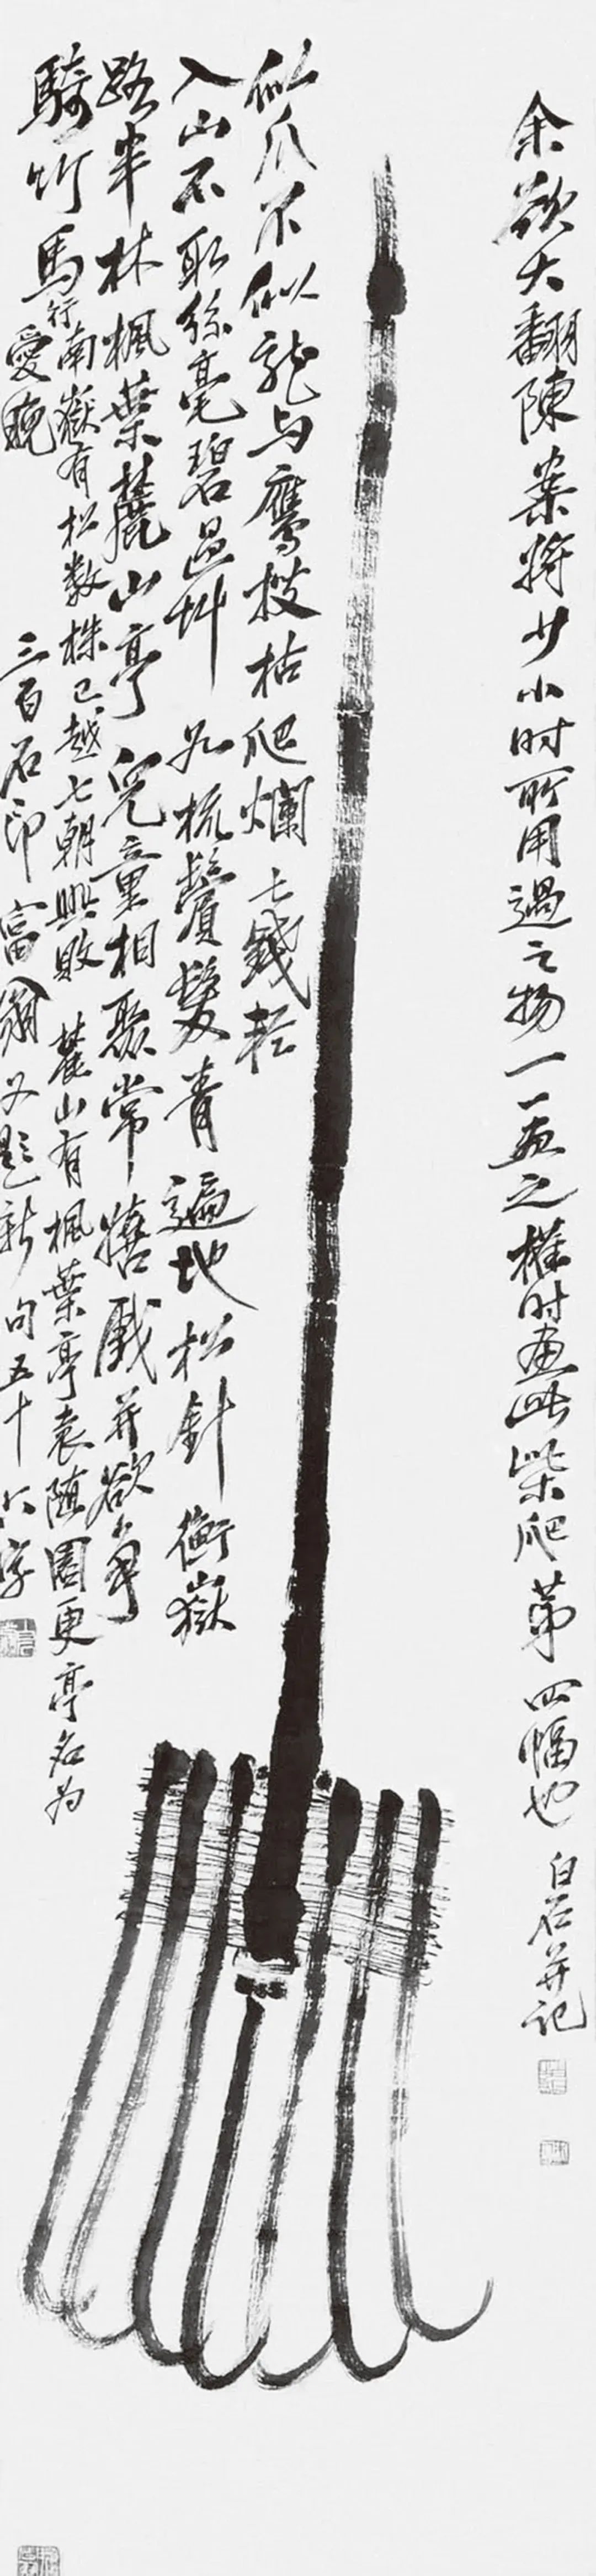 余欲大翻陳案將少小时所用過之物一一画之權时画此柴爬第四幅也 白石并记
似爪不似龍与鷹搜枯爬爛七錢輕
入山不取絲毫碧過艸如梳鬢髮青遍地松針衡嶽
路半林楓葉麓山亭兒童相聚常嬉戲并欲爭
騎竹馬行南嶽有松數株已越七朝興敗麓山有楓葉亭袁随園更亭名为
愛晚 三百石印富翁又題新句五十六字